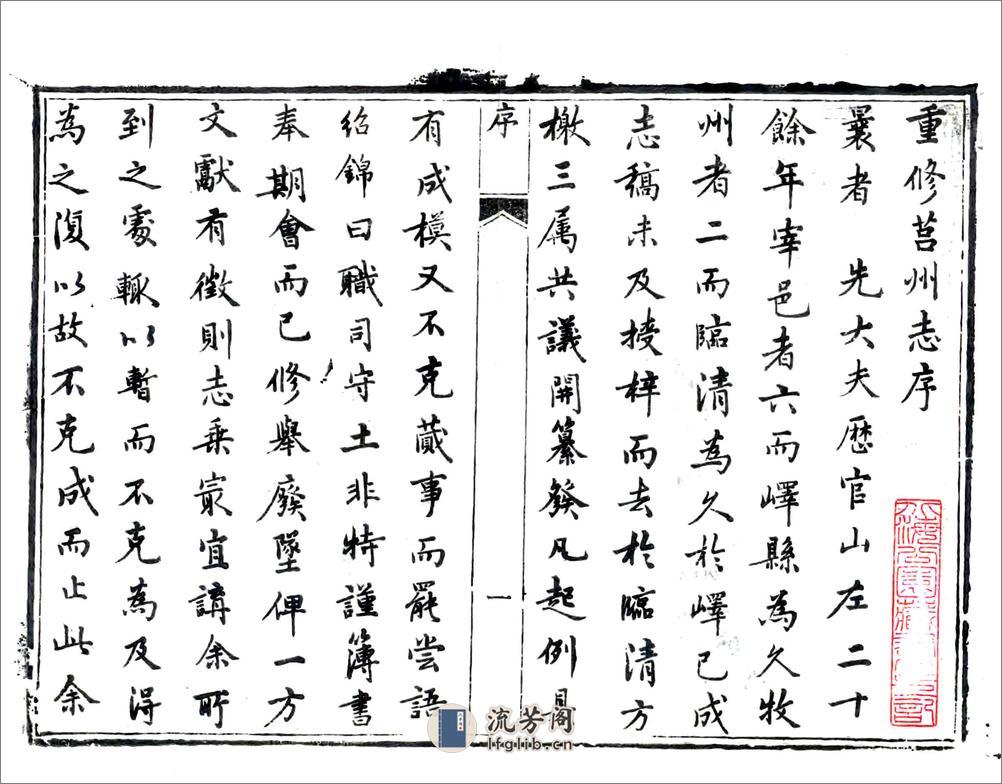 重修莒州志序
曩者　先大夫歷官山左二十
餘年宰邑者六而嶧縣為久牧
州者二而臨清為久於嶧已成
志稿未及授梓而去於臨清方
檄三属共議開纂發凡起例具
序
一
有成模又不克蕆事而罷嘗語
紹錦曰職司守土非特謹簿書
奉期會而已修舉廢墜俾一方
文獻有徵則志乘冣宜講余所
到之處輙以暫而不克為及得
為之復以故不克成而止此余
流芳阁
lfglib.cn